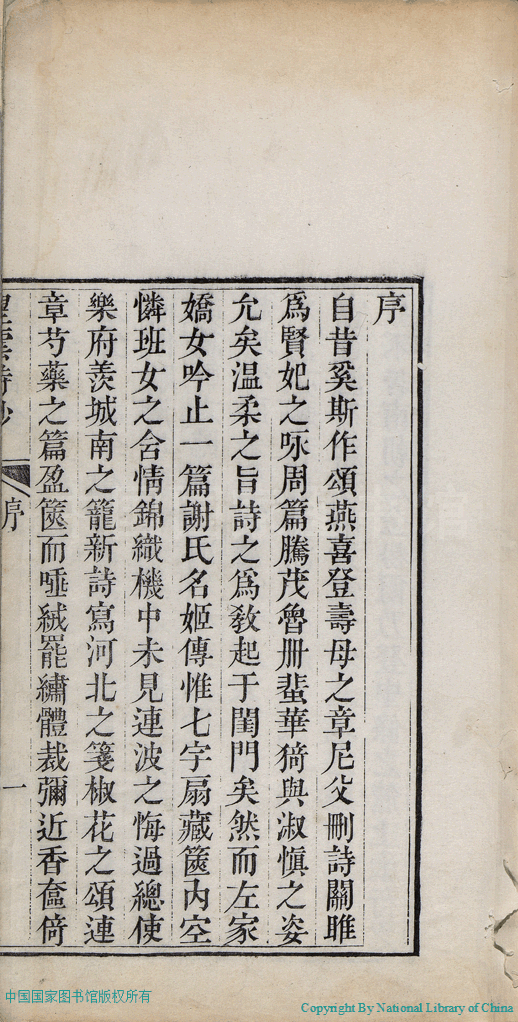 序
自昔奚斯作頌燕喜登壽母之章尼父刪詩關雎
爲賢妃之咏周篇騰茂魯冊蜚華猗與淑慎之姿
允矣温柔之旨詩之爲敎起于閨門矣然而左家
嬌女吟止一篇謝氏名姬傳惟七字扇藏篋内空
憐班女之含情錦織機中未見連波之悔過總使
樂府羨城南之籠新詩寫河北之箋椒花之頌連
章芍藥之篇盈篋而唾絨罷繡體裁彌近香奩倚
序
一
中国国家图书馆版权所有
Copyright By National Library of China